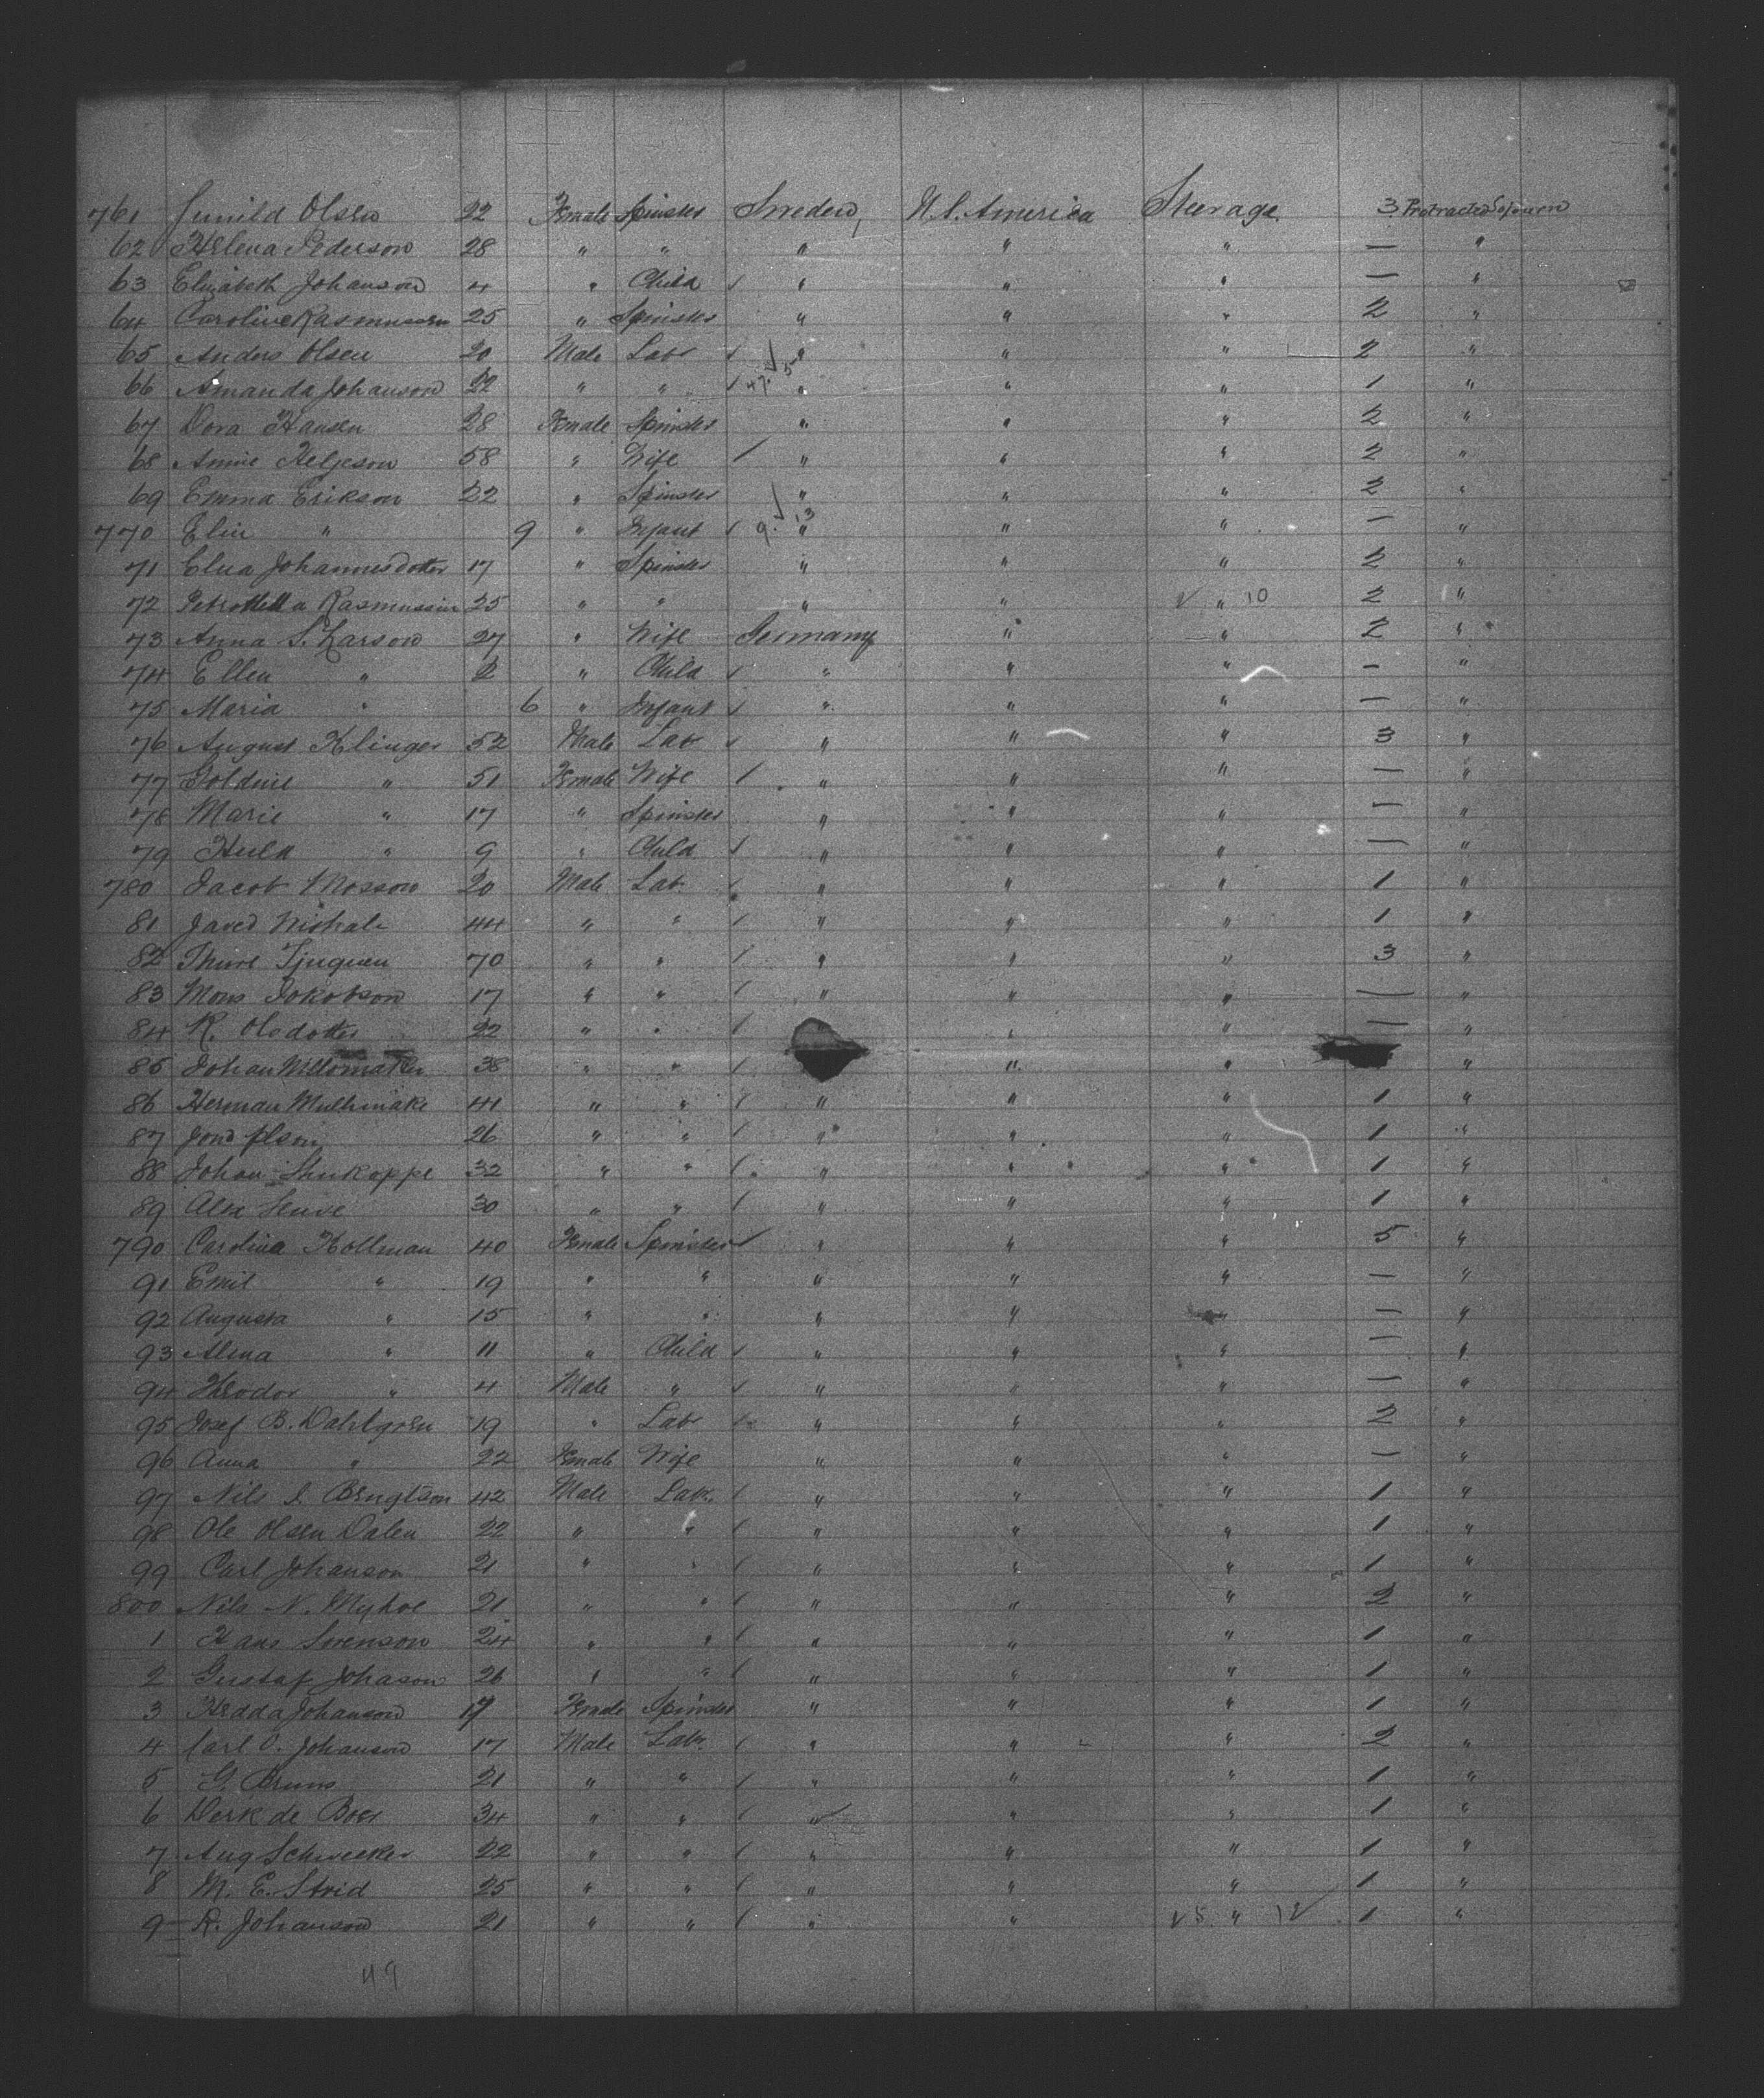 761 Gunild Olsen 22 Female Spinster Sweden, U.S. America Steerage. 3 Protracted Sojourn
62 Helena Pederson 28 " " " " " — "
63 Elizabeth Johanson 4 " Child / " " " — "
64 Caroline Rasmussen 25 " Spinster " " " 2 "
65 Anders Olsen 20 Male Labr / " " " 2 "
66 Amanda Johanson 22 " " / " " " 1 "
67 Dora Hansen 28 Female Spinster " " " 2 "
68 Annie Heljeson 58 " Wife / " " " 2 "
69 Emma Erikson 22 " Spinster " " " 2 "
770 Elin " 9 " Infant / 9. 13 " " " — "
71 Elna Johannesdotter 17 " Spinster " " " 2 "
72 Petronella Rasmussen 25 " " " " " 10 2 "
73 Anna S. Larson 27 " Wife Germany " " 2 "
74 Ellen " 2 " Child / " " " — "
75 Maria " 6 " Infant / " " " — "
76 August Klinger 52 Male Labr / " " " 3 "
77 " 51 Female Wife / " " " — "
78 Marie " 17 " Spinster " " " — "
79 Huld " 9 " Child / " " " — "
780 Jacob Mosson 20 Male Lab. / " " " 1 "
81 44 " " / " " " 1 "
82 Thure 70 " " / " " " 3 "
83 Mons Jokobson 17 " " / " " " — "
84 R. Olsdotter 22 " " / " " — "
85 Johan 38 " " / " " "
86 Herman 41 " " / " " " 1 "
87 26 " " / " " " 1 "
88 Johan 32 " " / " " " 1 "
89 30 " " / " " " 1 "
790 Carolina Hollman 40 Female Spinster / " " " 5 "
91 Emil " 19 " " " " " — "
92 Augusta " 15 " " " " " — "
93 Alma " 11 " Child / " " " — "
94 Theodor " 4 Male " / " " " — "
95 Josef B. Dahlgren 19 " Labr / " " " 2 "
96 Anna " 22 Female Wife " " " — "
97 Nils J. Bengtson 42 Male Lab. / " " " 1 "
98 Ole Olsen Dalen 22 " " / " " " 1 "
99 Carl Johanson 21 " " / " " " 1 "
800 Nils N. Myhoe 21 " " / " " " 2 "
1 Hans Svenson 24 " " / " " " 1 "
2 Gustaf Johason 26 " " / " " " 1 "
3 Hedda Johanson 17 Female Spinster " " " 1 "
4 Carl O. Johanson 17 Male Labr. / " " " 2 "
5 G. Bruns 21 " " / " " " 1 "
6 Derk de Boer 34 " " / " " " 1 "
7 Aug Schweeker 22 " " / " " " 1 "
8 M. E. Strid 25 " " / " " " 1 "
9 R. Johanson 21 " " / " " 5 " 12 1 "
49